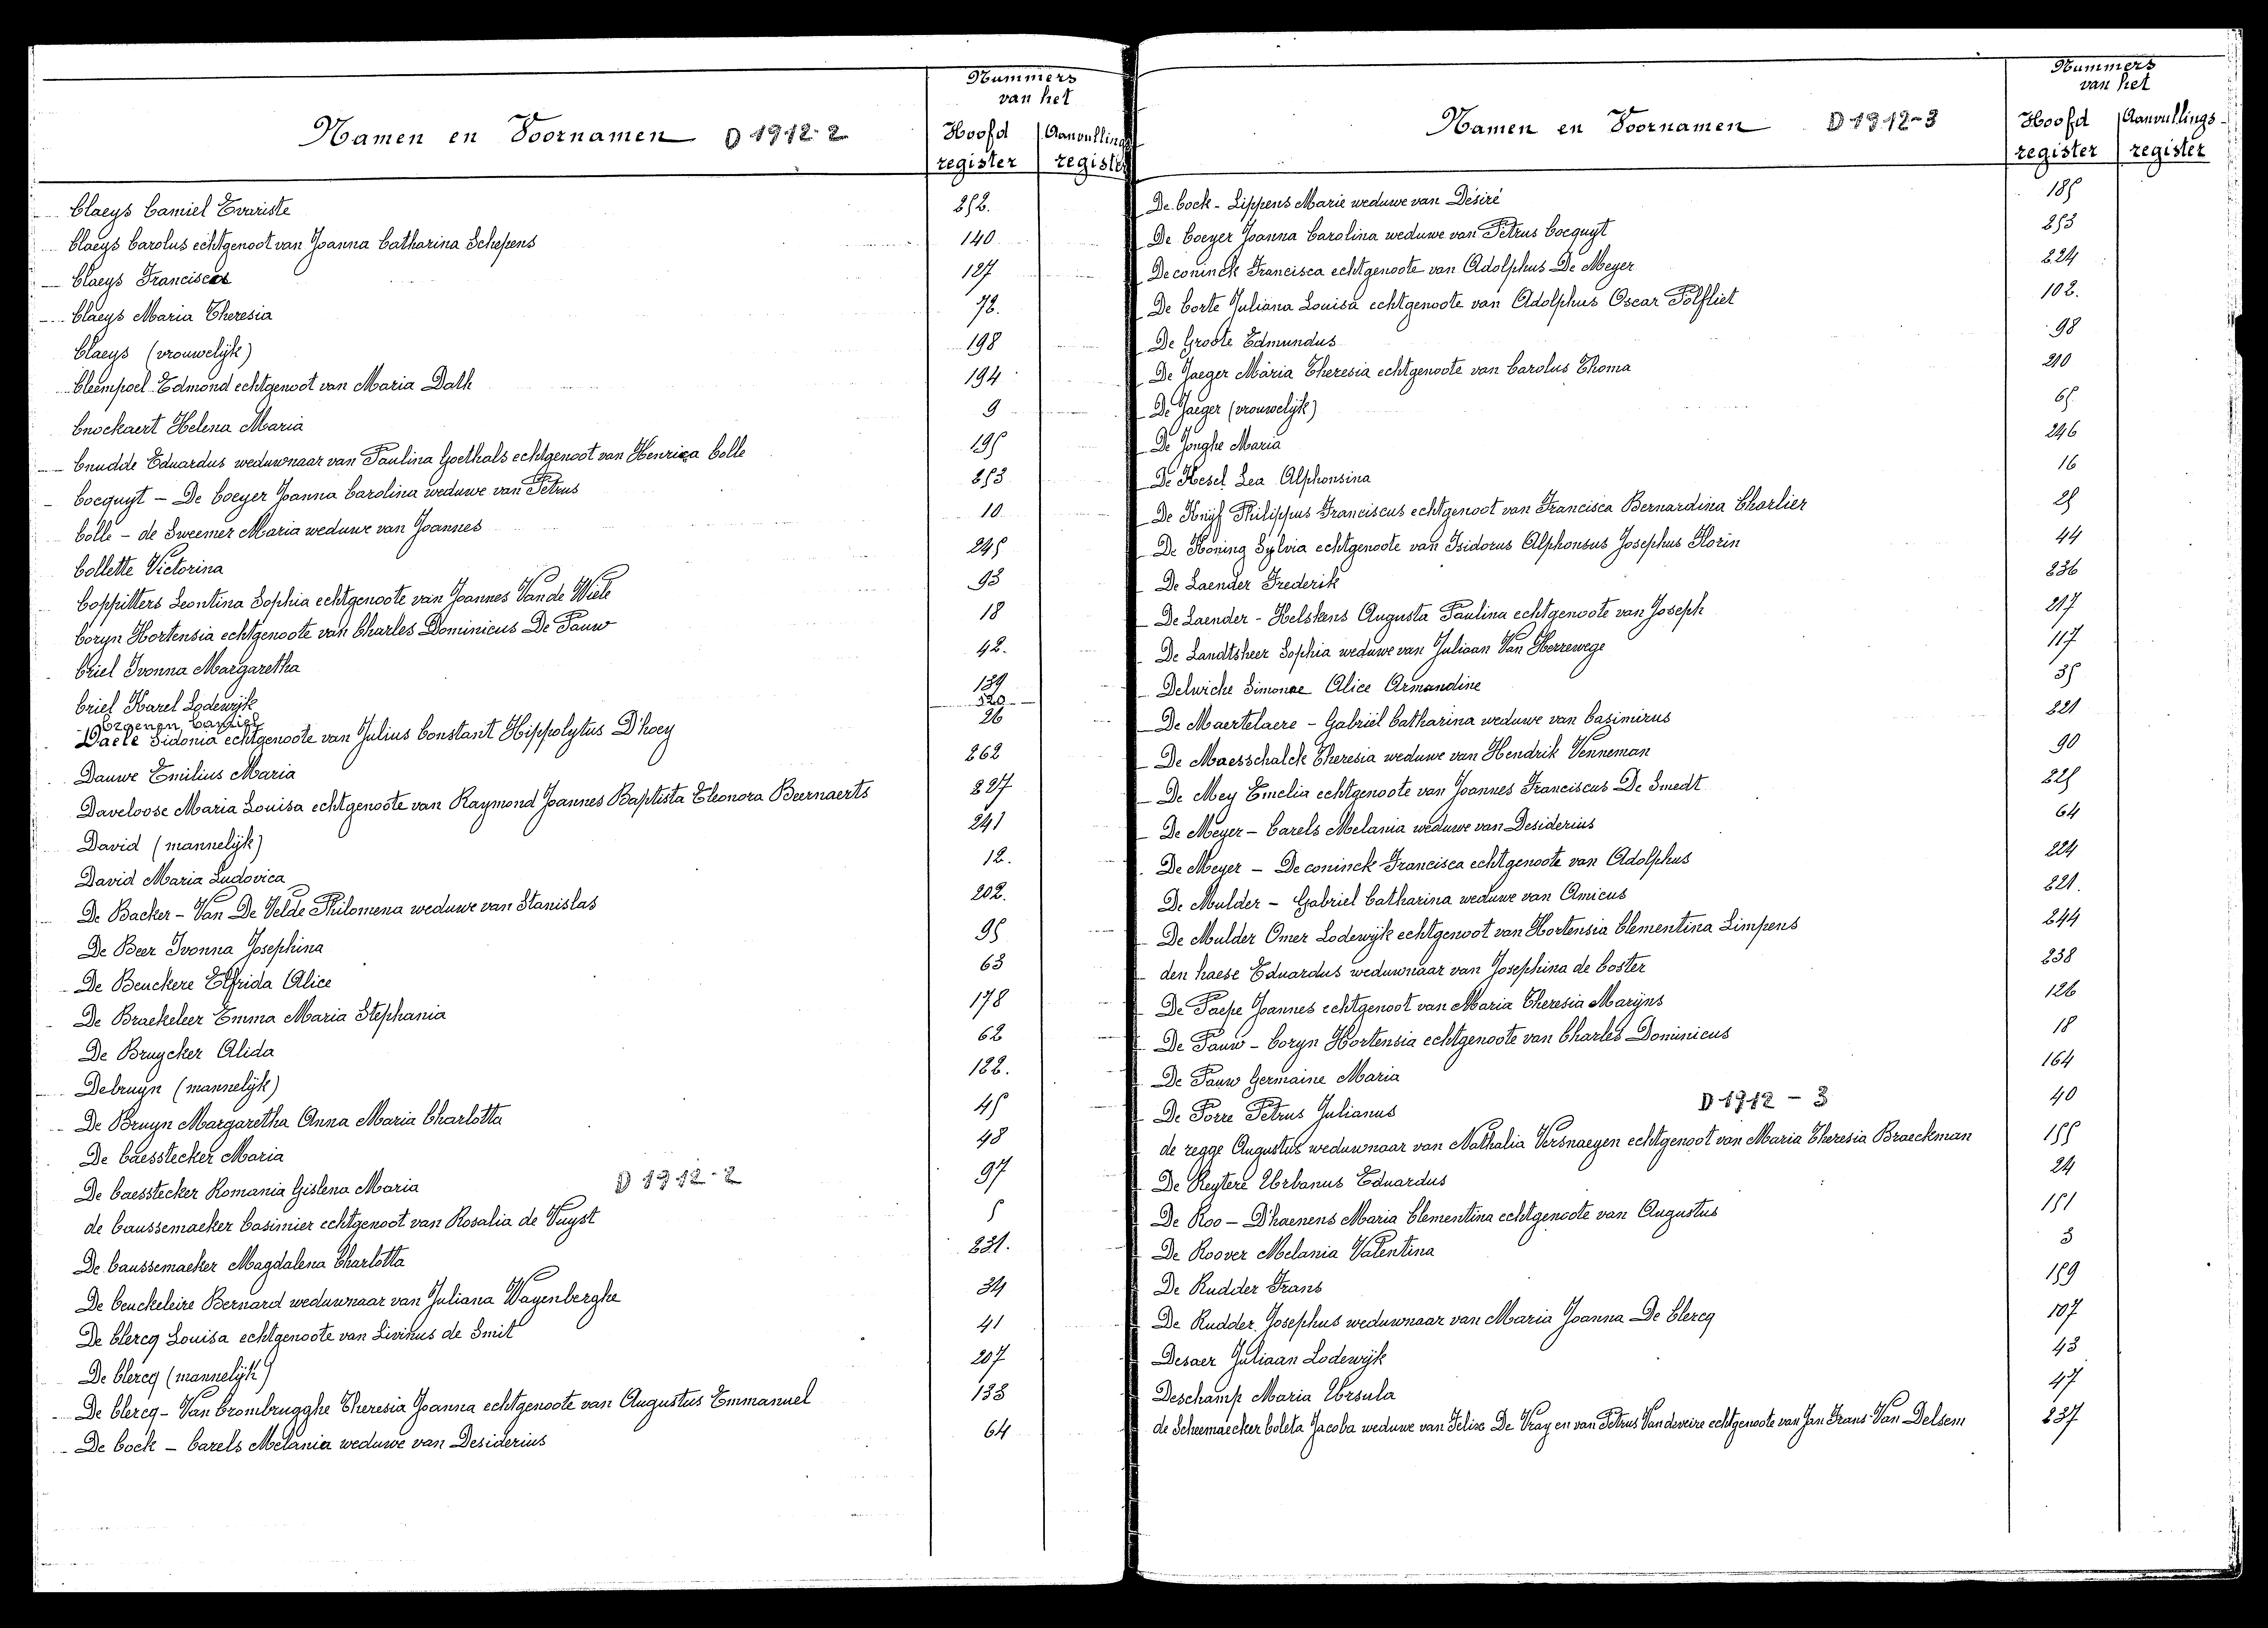 Nummers
van het
Namen en Voornamen D 1912-2
Hoofd register
Aanvullings register
Claeys Camiel Evariste 252.
Claeys Carolus echtgenoot van Joanna Catharina Schepens 140
Claeys Francisca 127
Claeys Maria Theresia 72.
Claeys (vrouwelijk) 198
Cleempoel Edmond echtgenoot van Maria Dalh 194
Cnockaert Helena Maria 9
Cnudde Eduardus weduwnaar van Paulina Goethals echtgenoot van Henrica Colle 195
Cocquyt - De Coeyer Joanna Carolina weduwe van Petrus 253
Colle - de Sweemer Maria weduwe van Joannes 10
Collette Victorina 245
Coppitters Leontina Sophia echtgenoote van Joannes Van de Wiele 93
Coryn Hortensia echtgenoote van Charles Dominicus De Pauw 18
Criel Ivonna Margaretha 42.
Criel Karel Lodewijk 139
Croenen Camiel 520
Daele Sidonia echtgenoote van Julius Constant Hippolytus D'hoey 26
Dauwe Emilius Maria 262
Daveloose Maria Louisa echtgenoote van Raymond Joannes Baptista Eleonora Beernaerts 227
David (mannelijk) 241
David Maria Ludovica 12.
De Backer - Van De Velde Philomena weduwe van Stanislas 202.
De Beer Ivonna Josephina 95
De Beuckere Elfrida Alice 63
De Braekeleer Emma Maria Stephania 178
De Bruycker Alida 62
Debruyn (mannelijk) 122.
De Bruyn Margaretha Anna Maria Charlotta 45
De Caesstecker Maria 48
De Caesstecker Romania Gislena Maria D 1912-2 97
de Caussemaeker Casimier echtgenoot van Rosalia de Vuyst 5
De Caussemaeker Magdalena Charlotta 231.
De Ceuckeleire Bernard weduwnaar van Juliana Wayenberghe 34
De Clercq Louisa echtgenoote van Livinus de Smit 41
De Clercq (mannelijk) 207
De Clercq - Van Crombrugghe Theresia Joanna echtgenoote van Augustus Emmanuel 133
De Cock - Carels Melania weduwe van Desiderius 64
Nummers
van het
Namen en Voornamen D 1912-3
Hoofd register
Aanvullings- register
De Cock - Lippens Marie weduwe van Désiré 185
De Coeyer Joanna Carolina weduwe van Petrus Cocquyt 253
De coninck Francisca echtgenoote van Adolphus De Meyer 224
De Corte Juliana Louisa echtgenoote van Adolphus Oscar Polfliet 102.
De Groote Edmundus 98
De Jaeger Maria Theresia echtgenoote van Carolus Thoma 210
De Jaeger (vrouwelijk) 65
De Jonghe Maria 246
De Kesel Lea Alphonsina 16
De Knijf Philippus Franciscus echtgenoot van Francisca Bernardina Charlier 25
De Koning Sylvia echtgenoote van Isidorus Alphonsus Josephus Florin 44
De Laender Frederik 236
De Laender - Helskens Augusta Paulina echtgenoote van Joseph 217
De Landtsheer Sophia weduwe van Juliaan Van Herrewege 117
Delwiche Simonne Alice Armandine 35
De Maertelaere - Gabriël Catharina weduwe van Casimirus 221
De Maesschalck Theresia weduwe van Hendrik Venneman 90
De Mey Emelia echtgenoote van Joannes Franciscus De Smedt 225
De Meyer - Carels Melania weduwe van Desiderius 64
De Meyer - De coninck Francisca echtgenoote van Adolphus 224
De Mulder - Gabriel Catharina weduwe van Amicus 221.
De Mulder Omer Lodewijk echtgenoot van Hortensia Clementina Limpens 244
den haese Eduardus weduwnaar van Josephina de Coster 238
De Paepe Joannes echtgenoot van Maria Theresia Marijns 126
De Pauw - Coryn Hortensia echtgenoote van Charles Dominicus 18
De Pauw Germaine Maria 164
De Porre Petrus Julianus D 1912 - 3 40
de regge Augustus weduwnaar van Nathalia Versnaeyen echtgenoot van Maria Theresia Braeckman 155
De Reytere Urbanus Eduardus 24
De Roo - D'haenens Maria Clementina echtgenoote van Augustus 151
De Roover Melania Valentina 3
De Rudder Frans 159
De Rudder Josephus weduwnaar van Maria Joanna De Clercq 107
Desaer Juliaan Lodewijk 43
Deschamp Maria Ursula 47
de Scheemaecker Coleta Jacoba weduwe van Felix De Vray en van Petrus Vandeveire echtgenoote van Jan Frans Van Delsem 237